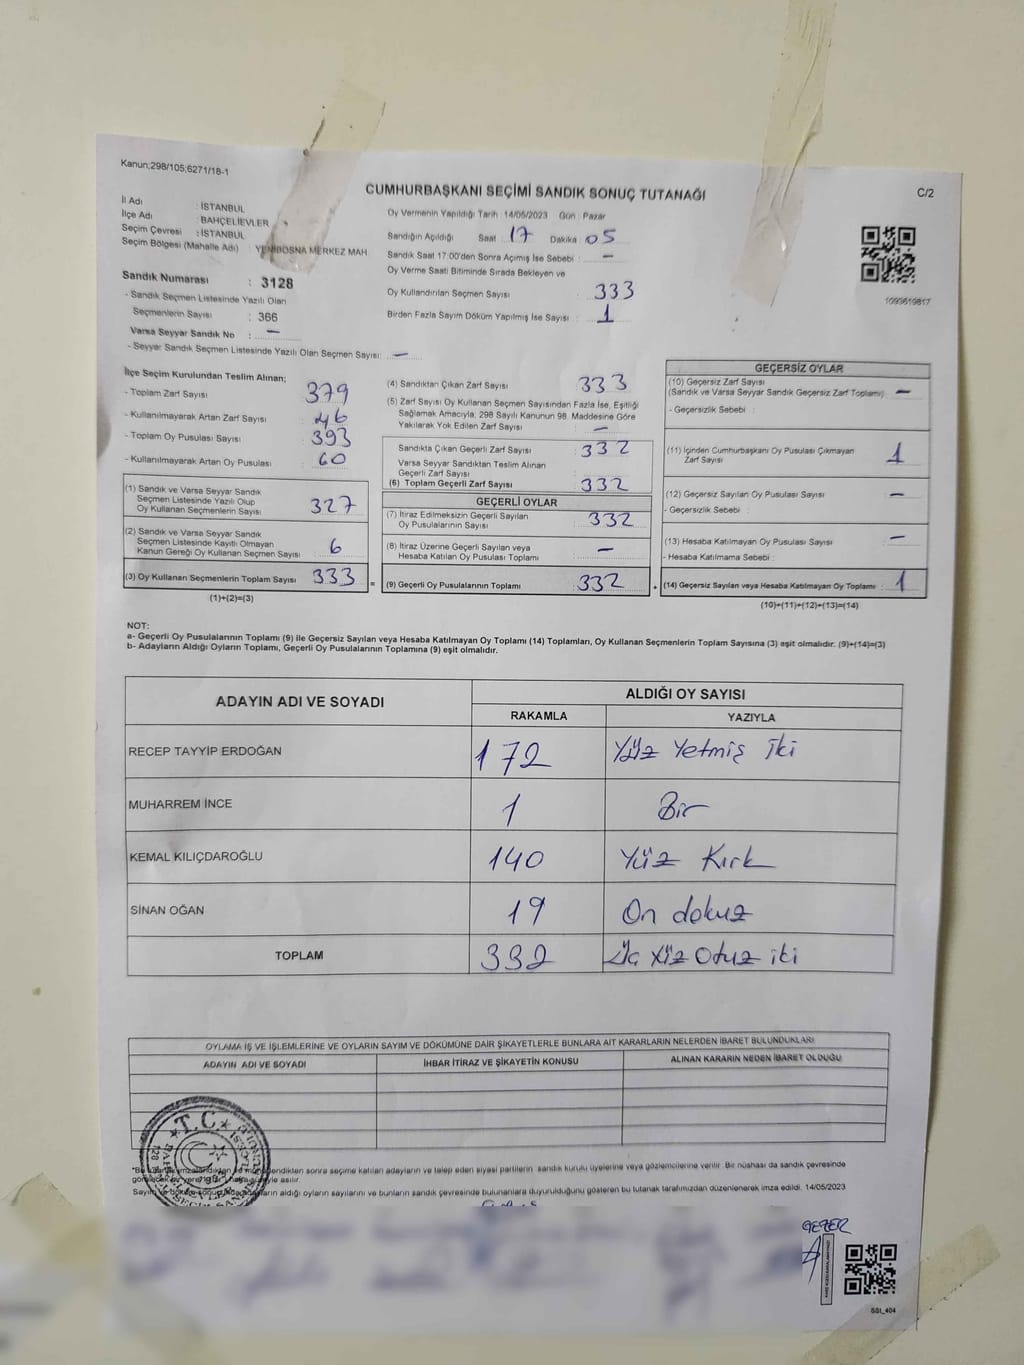 Kanun;298/105;6271/18-1
CUMHURBAŞKANI SEÇİMİ SANDIK SONUÇ TUTANAĞI
C/2
İl Adı : İSTANBUL
İlçe Adı : BAHÇELİEVLER
Seçim Çevresi : İSTANBUL
Seçim Bölgesi (Mahalle Adı) : YENİBOSNA MERKEZ MAH
Sandık Numarası : 3128
- Sandık Seçmen Listesinde Yazılı Olan
Seçmenlerin Sayısı : 366
Varsa Seyyar Sandık No : —
- Seyyar Sandık Seçmen Listesinde Yazılı Olan Seçmen Sayısı: —
Oy Vermenin Yapıldığı Tarih : 14/05/2023 Gün : Pazar
Sandığın Açıldığı Saat 17 Dakika 05
Sandık Saat 17:00'den Sonra Açılmış İse Sebebi : —
Oy Verme Saati Bitiminde Sırada Bekleyen ve
Oy Kullandırılan Seçmen Sayısı 333
Birden Fazla Sayım Döküm Yapılmış İse Sayısı : 1
1093619817
İlçe Seçim Kurulundan Teslim Alınan;
- Toplam Zarf Sayısı 379
- Kullanılmayarak Artan Zarf Sayısı 46
- Toplam Oy Pusulası Sayısı 393
- Kullanılmayarak Artan Oy Pusulası 60
(1) Sandık ve Varsa Seyyar Sandık
Seçmen Listesinde Yazılı Olup
Oy Kullanan Seçmenlerin Sayısı 327
(2) Sandık ve Varsa Seyyar Sandık
Seçmen Listesinde Kayıtlı Olmayan
Kanun Gereği Oy Kullanan Seçmen Sayısı 6
(3) Oy Kullanan Seçmenlerin Toplam Sayısı 333 =
(1)+(2)=(3)
(4) Sandıktan Çıkan Zarf Sayısı 333
(5) Zarf Sayısı Oy Kullanan Seçmen Sayısından Fazla İse, Eşitliği
Sağlamak Amacıyla, 298 Sayılı Kanunun 98. Maddesine Göre
Yakılarak Yok Edilen Zarf Sayısı —
Sandıkta Çıkan Geçerli Zarf Sayısı : 332
Varsa Seyyar Sandıktan Teslim Alınan
Geçerli Zarf Sayısı :
(6) Toplam Geçerli Zarf Sayısı : 332
GEÇERLİ OYLAR
(7) İtiraz Edilmeksizin Geçerli Sayılan
Oy Pusulalarının Sayısı : 332
(8) İtiraz Üzerine Geçerli Sayılan veya
Hesaba Katılan Oy Pusulası Toplamı : —
(9) Geçerli Oy Pusulalarının Toplamı : 332 +
GEÇERSİZ OYLAR
(10) Geçersiz Zarf Sayısı
(Sandık ve Varsa Seyyar Sandık Geçersiz Zarf Toplamı) : —
- Geçersizlik Sebebi :
(11) İçinden Cumhurbaşkanı Oy Pusulası Çıkmayan
Zarf Sayısı : 1
(12) Geçersiz Sayılan Oy Pusulası Sayısı : —
- Geçersizlik Sebebi :
(13) Hesaba Katılmayan Oy Pusulası Sayısı : —
- Hesaba Katılmama Sebebi :
(14) Geçersiz Sayılan veya Hesaba Katılmayan Oy Toplamı : 1
(10)+(11)+(12)+(13)=(14)
NOT:
a- Geçerli Oy Pusulalarının Toplamı (9) ile Geçersiz Sayılan veya Hesaba Katılmayan Oy Toplamı (14) Toplamları, Oy Kullanan Seçmenlerin Toplam Sayısına (3) eşit olmalıdır. (9)+(14)=(3)
b- Adayların Aldığı Oyların Toplamı, Geçerli Oy Pusulalarının Toplamına (9) eşit olmalıdır.
ADAYIN ADI VE SOYADI
ALDIĞI OY SAYISI
RAKAMLA YAZIYLA
RECEP TAYYİP ERDOĞAN 172 Yüz Yetmiş iki
MUHARREM İNCE 1 Bir
KEMAL KILIÇDAROĞLU 140 Yüz Kırk
SİNAN OĞAN 19 On dokuz
TOPLAM 332 Üç Yüz Otuz iki
OYLAMA İŞ VE İŞLEMLERİNE VE OYLARIN SAYIM VE DÖKÜMÜNE DAİR ŞİKAYETLERLE BUNLARA AİT KARARLARIN NELERDEN İBARET BULUNDUKLARI
ADAYIN ADI VE SOYADI İHBAR İTİRAZ VE ŞİKAYETİN KONUSU ALINAN KARARIN NEDEN İBARET OLDUĞU
T.C.
sonra seçime katılan adayların ve talep eden siyasi partilerin sandık kurulu üyelerine veya gözlemcilerine verilir. Bir nüshası da sandık çevresinde
asılır.
aldığı oyların sayılarını ve bunların sandık çevresinde bulunanlara duyurulduğunu gösteren bu tutanak tarafımızdan düzenlenerek imza edildi. 14/05/2023
GEZER
SSI_404